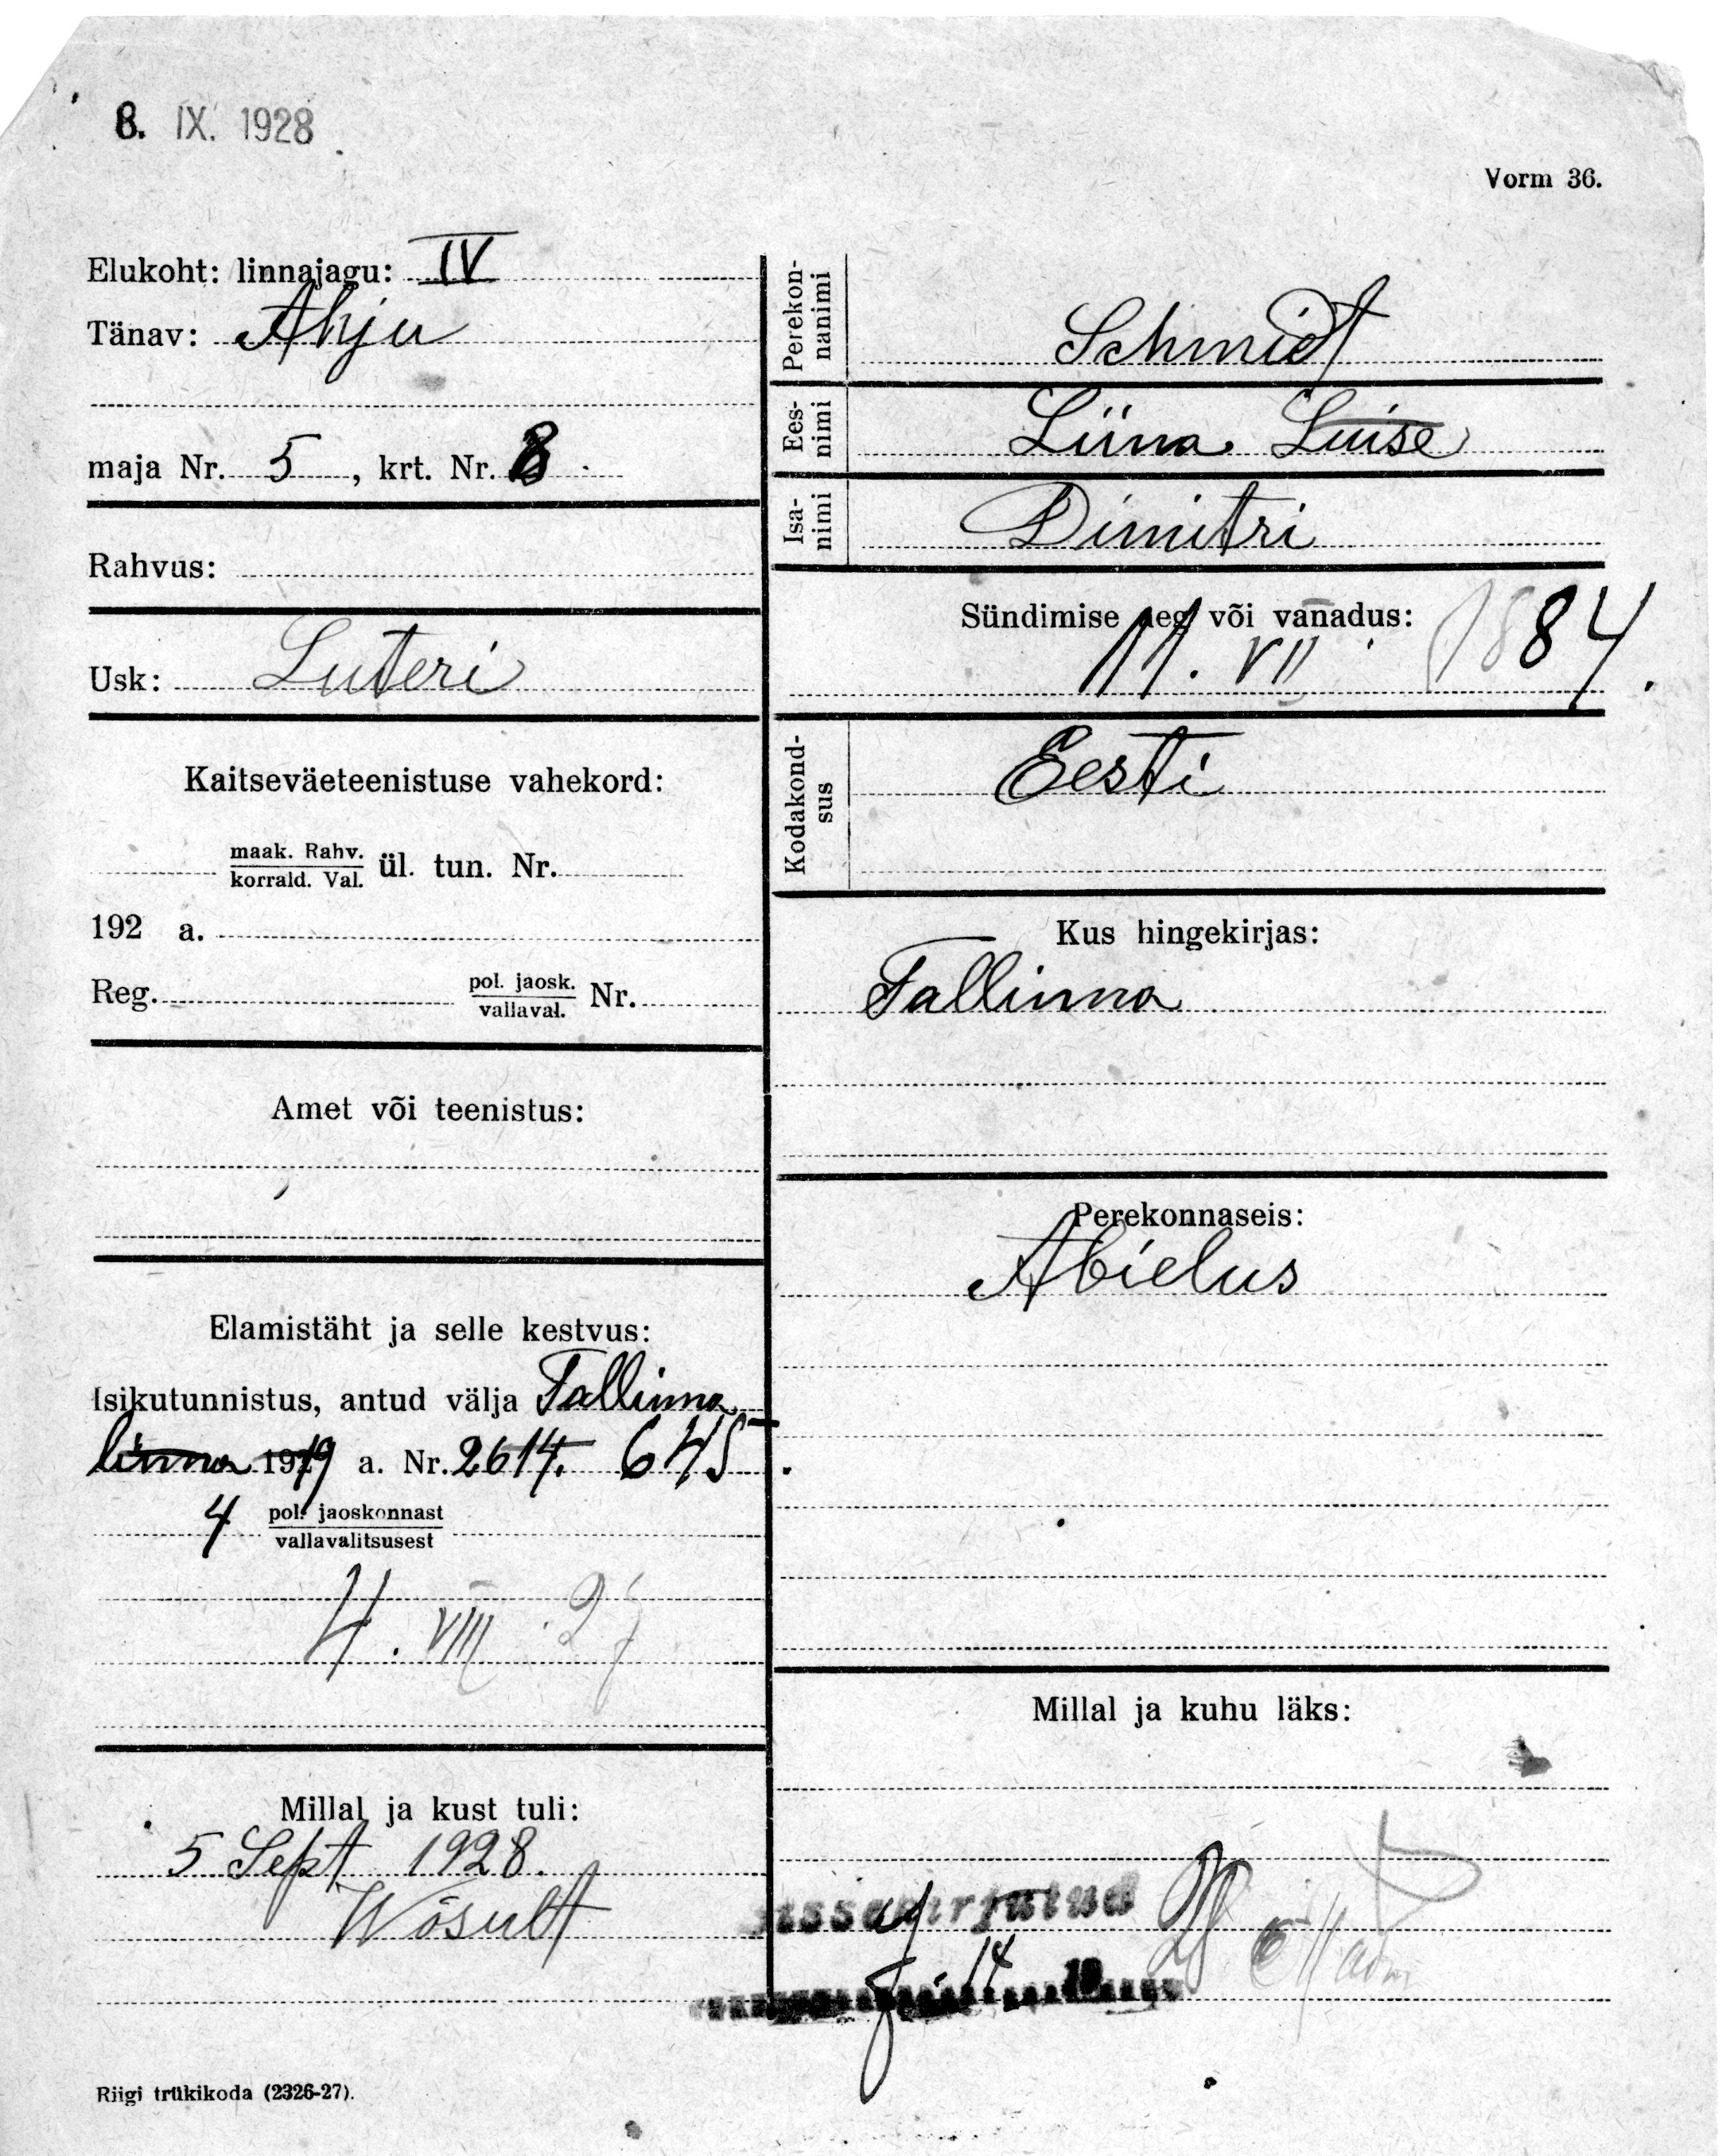 6. IX. 1928
Vorm 36.
Elukoht: linnajagu: IV
Tänav: Ahju
maja Nr. 5, krt. Nr. 8
Rahvus:
Usk: Luteri
Kaitseväeteenistuse vahekord:
maak. Rahv.
korrald. Val.
ül. tun. Nr.
192 a.
Reg. pol. jaosk.
vallaval.
Nr.
Amet või teenistus:
Elamistäht ja selle kestvus:
Isikutunnistus, antud välja Tallinna
linna 1919 a. Nr. 2614. 645.
4 pol. jaoskonnast
vallavalitsusest
4. VIII 27
Millal ja kust tuli:
5 Sept 1928.
Wösult
Riigi trükikoda (2326-27).
Perekon-
nanimi
Schmidt
Ees-
nimi
Liina Luise
Isa-
nimi
Dimitri
Sündimise aeg või vanadus:
11. VII 1884.
Kodakond-
sus
Eesti
Kus hingekirjas:
Tallinna
Perekonnaseis:
Abielus
Millal ja kuhu läks:
Sissekirjutud
14